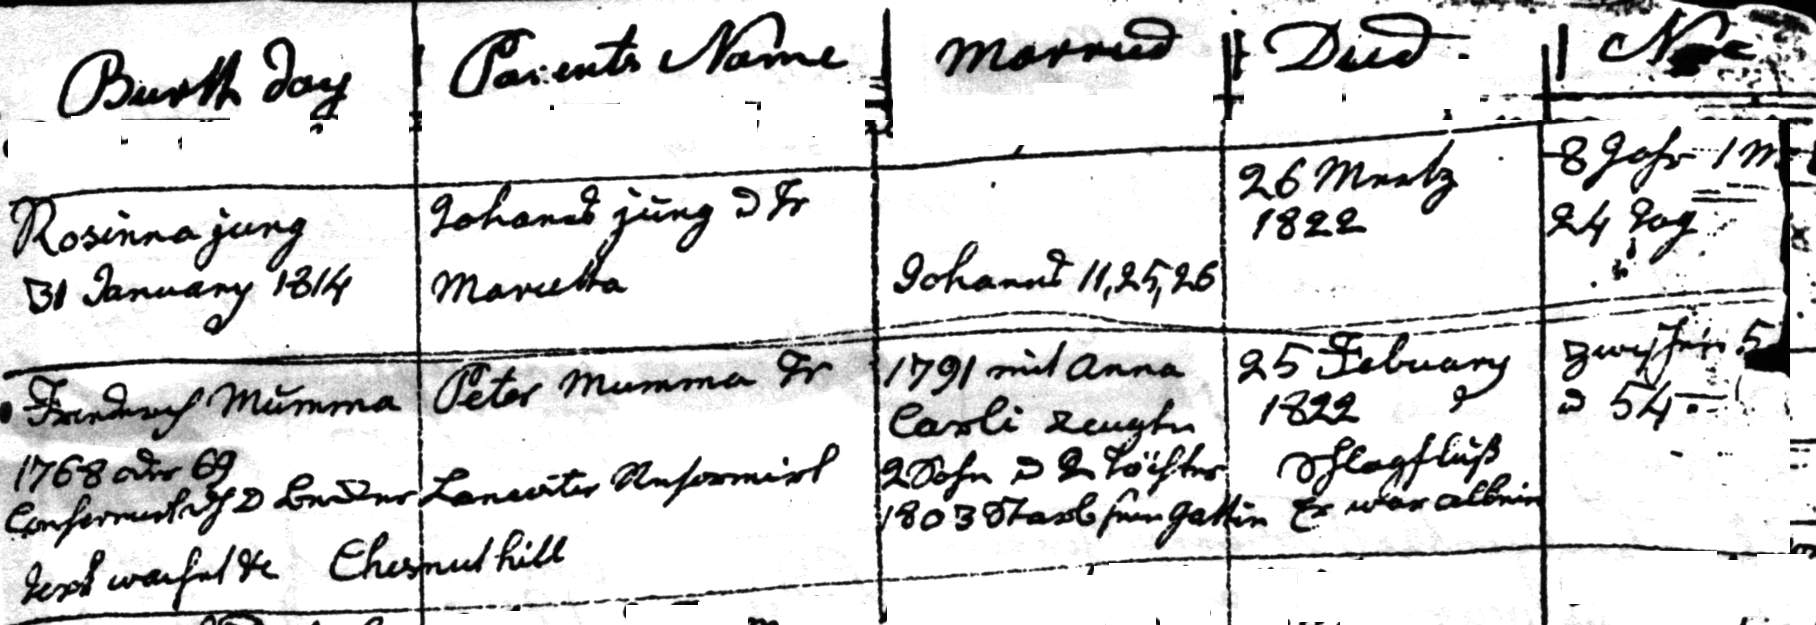 Burth Day Parents Name Married Died
Rosinna jung
31 January 1814
Johannes jüng Fr
Marietta
Johannes 11,25,26
26 Mertz
1822
8 Jahr 1 M
24 Tag
Friedrich Mümma
1768 oder 69
Peter Mumma Fr
Lancaster Reformirt
Chesnut hill
1791 mit Anna
Carli zeugte
2 Sohn 2 Töchter
1803 Starb sein Gattin
25 Febuary
1822
Schlagflüß
Er war allein
zwischen 5
54